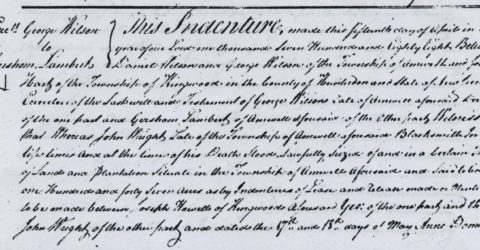 Exe.rs George Wilson
to
Gershom Lambert
This Indenture, made this fifteenth day of in
year of our Lord one thousand Seven Hundred and Eighty Eight Betw
Daniel Wilson and George Wilson of the Township of Amwell and
of the Township of Kingwood in the County of Hunterdon and State of New
Executors of the Last will and Testament of George Wilson Late of Amwell aforesaid
of the one part and Gershom Lambert of Amwell aforesaid of the other party Witness
that Whereas John Wright Late of the Township of Amwell aforesaid Blacksmith
life time And at the time of his Death Stood Lawfully Seized of and in a Certain
of Land and Plantation Situate in the Township of Amwell Aforesaid and Said to
one Hundred and forty Seven Acres as by Indentures of Lease and Release made or
to be made between Joseph Howell of Kingwood aforesaid of the one party and
John Wright of the other party and dated the 17th and 18th days of May Anno Dom